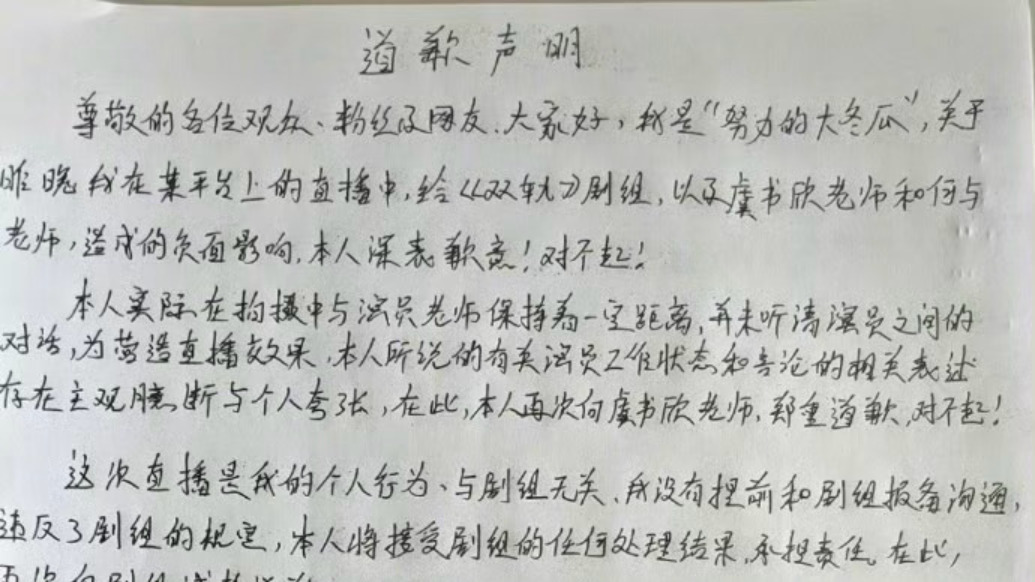 道歉声明
尊敬的各位观众、粉丝及网友、大家好，我是“努力的大冬瓜”，关于
昨晚我在某平台上的直播中，给《双轨》剧组，以及虞书欣老师和何与
老师，造成的负面影响，本人深表歉意！对不起！
本人实际在拍摄中与演员老师保持着一定距离，并未听清演员之间的
对话，为营造直播效果，本人所说的有关演员工作状态和言论的相关表述
存在主观臆断与个人夸张，在此，本人再次向虞书欣老师，郑重道歉，对不起！
这次直播是我的个人行为、与剧组无关、我没有提前和剧组报备沟通，
违反了剧组的规定，本人将接受剧组的任何处理结果，承担责任。在此，
再次向剧组